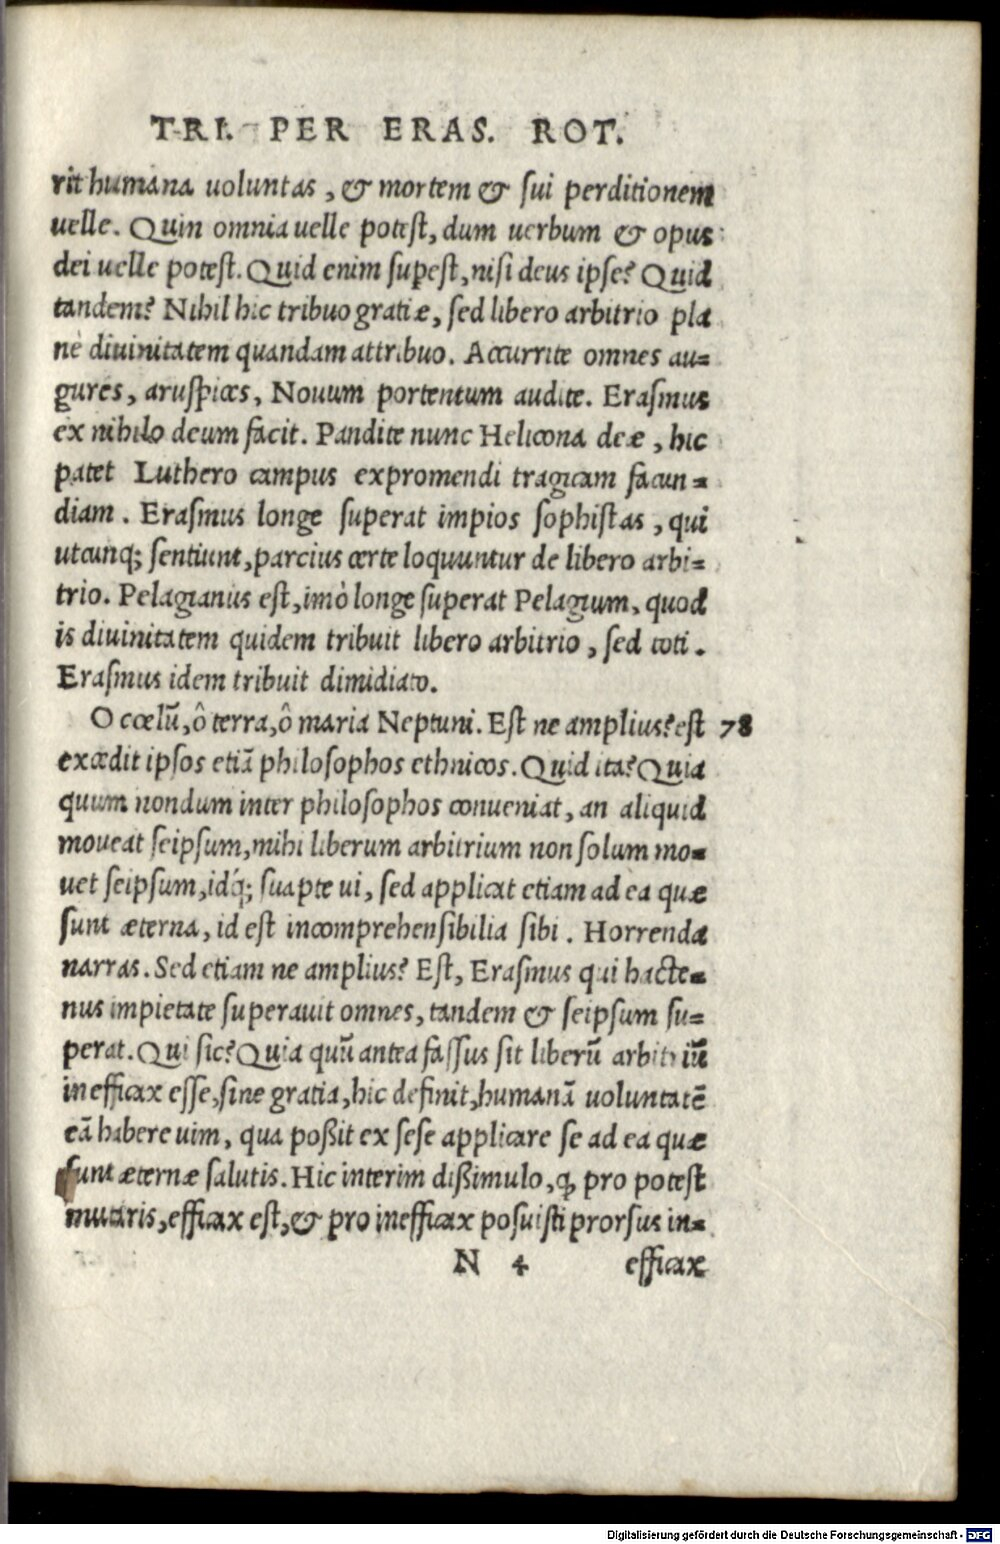 TRI. PER ERAS. ROT.
rit humana uoluntas, & mortem & sui perditionem
uelle. Quin omnia uelle potest, dum uerbum & opus
dei uelle potest. Quid enim supest, nisi deus ipse? Quid
tandem? Nihil hic tribuo gratiæ, sed libero arbitrio pla
nè diuinitatem quandam attribuo. Accurrite omnes au=
gures, aruspices, Nouum portentum audite. Erasmus
ex nihilo deum facit. Pandite nunc Helicona deæ, hic
patet Luthero campus expromendi tragicam facun=
diam. Erasmus longe superat impios sophistas, qui
utcunq; sentiunt, parcius certe loquuntur de libero arbi=
trio. Pelagianus est, imò longe superat Pelagium, quod
is diuinitatem quidem tribuit libero arbitrio, sed toti.
Erasmus idem tribuit dimidiato.
O cœlũ, ô terra, ô maria Neptuni. Est ne amplius? est 78
excedit ipsos etiã philosophos ethnicos. Quid ita? Quia
quum nondum inter philosophos conueniat, an aliquid
moueat seipsum, mihi liberum arbitrium non solum mo=
uet seipsum, idq́; suapte ui, sed applicat etiam ad ea quæ
sunt æterna, id est incomprehensibilia sibi. Horrenda
narras. Sed etiam ne amplius? Est, Erasmus qui hacte=
nus impietate superauit omnes, tandem & seipsum su=
perat. Qui sic? Quia quũ antea fassus sit liberũ arbitriũ
inefficax esse, sine gratia, hic definit, humanã uoluntatẽ
eã habere uim, qua poßit ex sese applicare se ad ea quæ
sunt æternæ salutis. Hic interim dißimulo, ꝙ pro potest
mutaris, efficax est, & pro inefficax posuisti prorsus in=
N 4 efficax
Digitalisierung gefördert durch die Deutsche Forschungsgemeinschaft - DFG